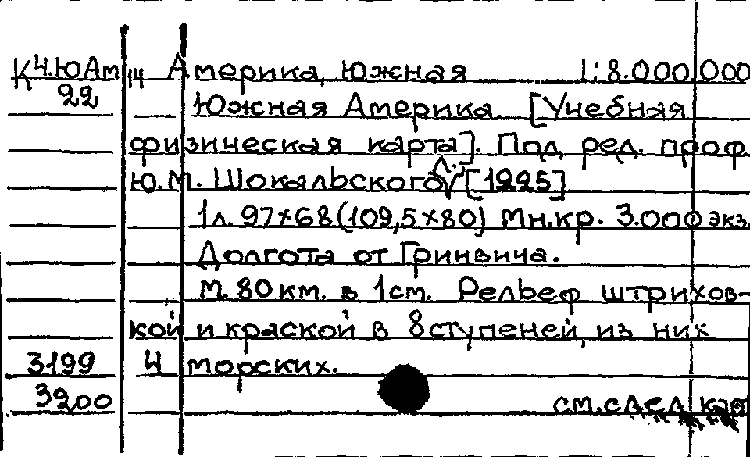 К Ч.ЮАм 14 Америка, Южная 1:8.000.000
22 Южная Америка [Учебная
физическая карта]. Под ред. проф.
Ю.М. Шокальского. Л., [1925]
1л. 97×68 (109,5×80) Мн.кр. 3.000 экз.
Долгота от Гринвича.
М. 80 км. в 1 см. Рельеф штрихов-
кой и краской в 8 ступеней, из них
3199 4 морских.
3200 см. след. карт